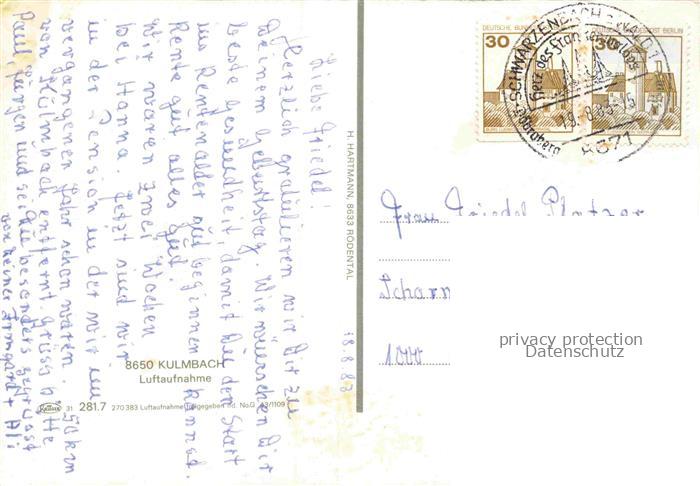 Liebe Friedel!
Herzlich gratulieren wir Dir zu
Deinem Geburtstag. Wir wünschen Dir
beste Gesundheit, damit Du den Start
ins Rentenalter gut beginnen kannst.
Rente gut alles gut.
Wir waren zwei Wochen
bei Hanna. Jetzt sind wir
in der Pension in der wir im
vergangenen Jahr schon waren. 50 km
von Kulmbach entfernt. Grüsse
Paul, Jürgen und sei Du besonders gegrüsst
von Deiner Irmgard + Ali
18.8.83
8650 KULMBACH
Luftaufnahme
31 281.7 270 383 Luftaufnahme freigegeben d. No.G 43/1109
H. HARTMANN, 8633 RÖDENTAL
DEUTSCHE BUNDESPOST BERLIN
30
30
SCHWARZENBACH A WALD 1
Herz des Frankenwaldes
8671
Frau Friedel Platzer
Scharn
1000
privacy protection
Datenschutz